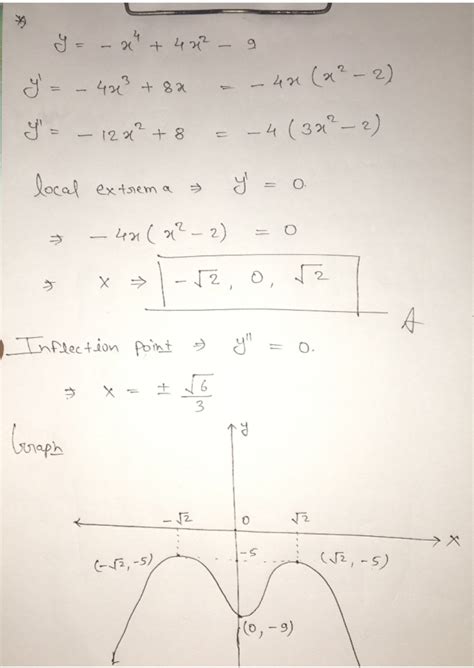 y = - x⁴ + 4x² - 9
y' = - 4x³ + 8x = - 4x (x² - 2)
y'' = - 12x² + 8 = - 4 (3x² - 2)
local extrema ⇒ y' = 0.
⇒ - 4x (x² - 2) = 0
⇒ x ⇒ -√2, 0, √2
A
Inflection point ⇒ y'' = 0.
⇒ x = ± √6/3
Graph
y
-√2 0 √2
x
-5
(-√2, -5) (√2, -5)
(0, -9)